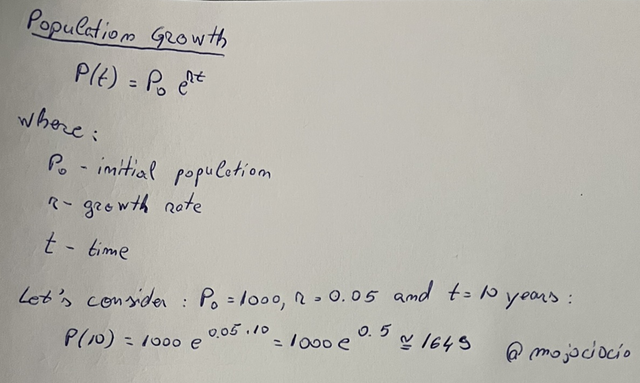 Population Growth
P(t) = P₀ e^rt
where:
P₀ - initial population
r - growth rate
t - time
Let's consider : P₀ = 1000, r = 0.05 and t = 10 years :
P(10) = 1000 e^0.05·10 = 1000 e^0.5 ≅ 1649 @mojociocio